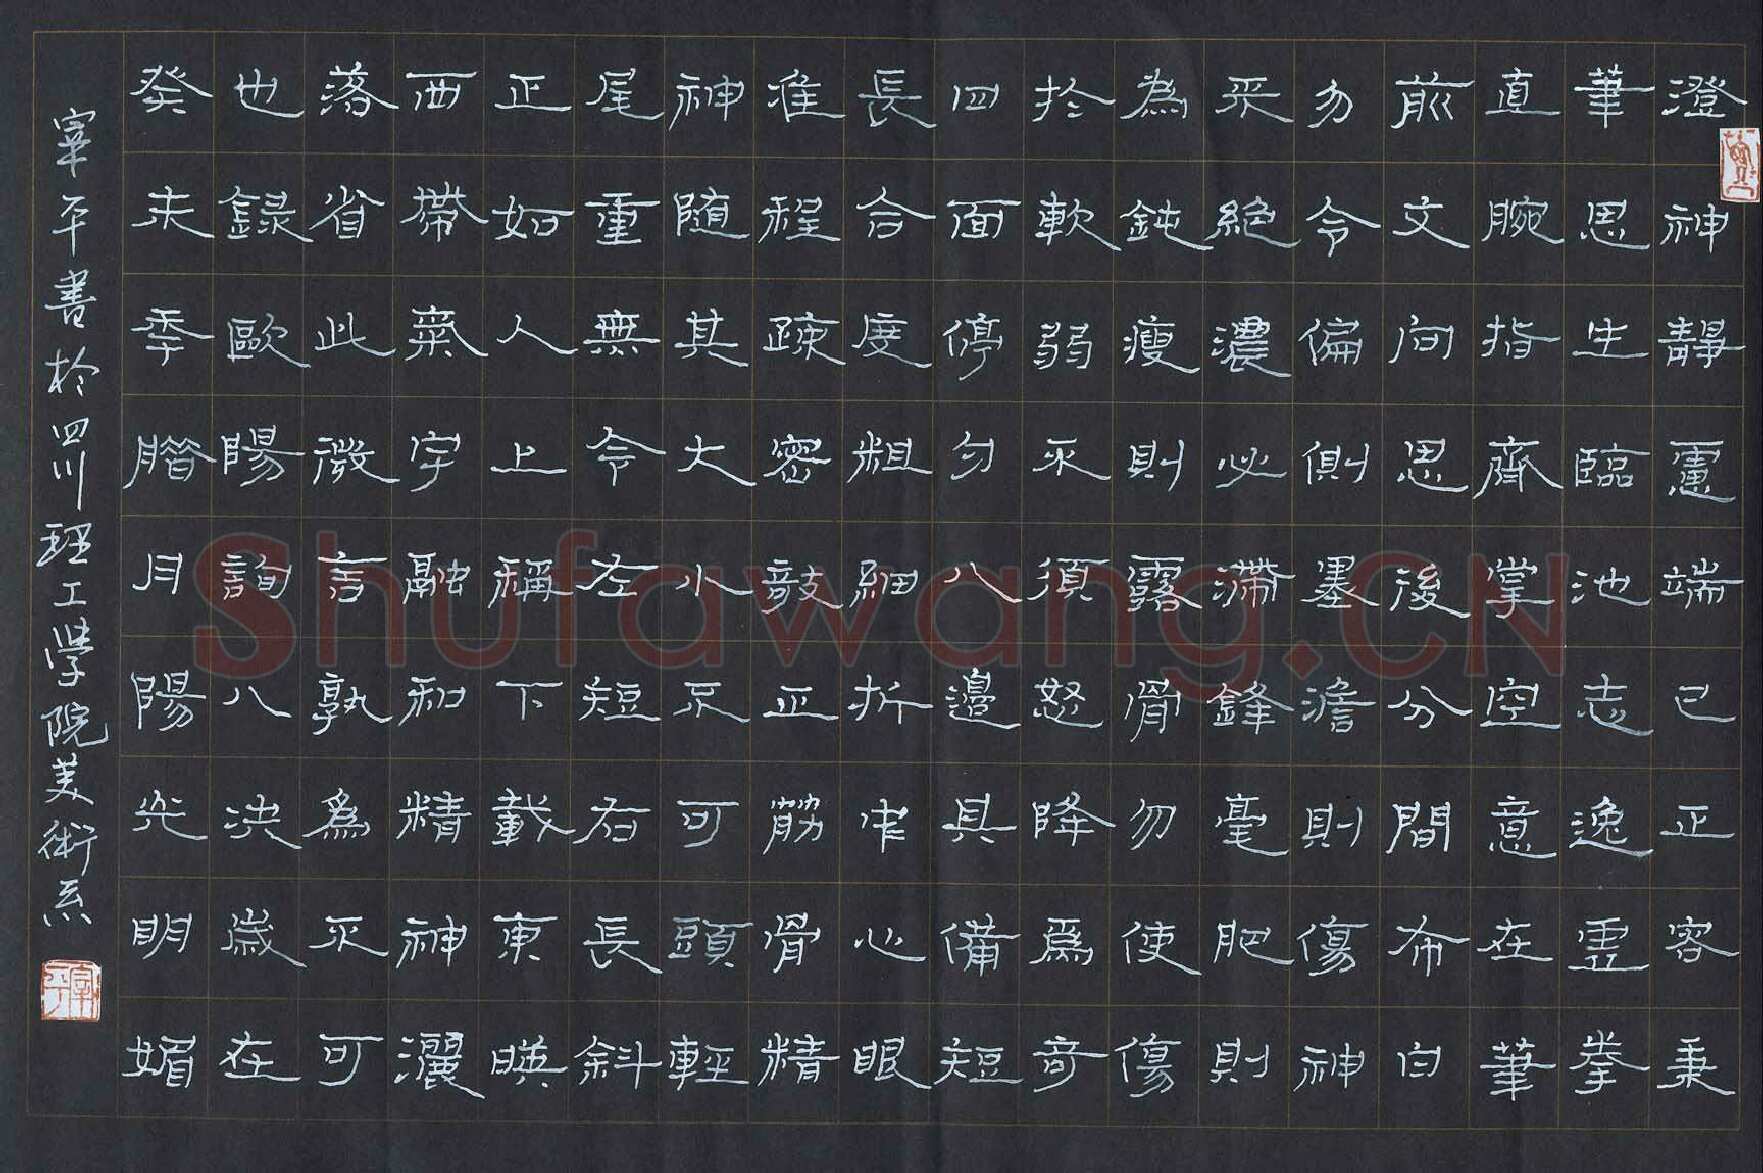 澄神靜慮端己正容秉
筆思生臨池志逸霊拳
直腕指齊掌空意在筆
前文向思後分間布白
勿令偏側墨澹則傷神
采絕濃必滯鋒毫肥則
為鈍瘦則露骨勿使傷
於軟弱不須怒降為奇
四面停勻八邊具備短
長合度粗細折中心眼
准程疎密敧正筋骨精
神随其大小不可頭輕
尾重無令左短右長斜
正如人上稱下載東映
西帶氣宇融和精神灑
落省此微言孰為不可
也錄歐陽詢八決歲在
癸未季腊月陽光明媚
宰平書於四川理工学院美術系
宰平
Shufawang.CN